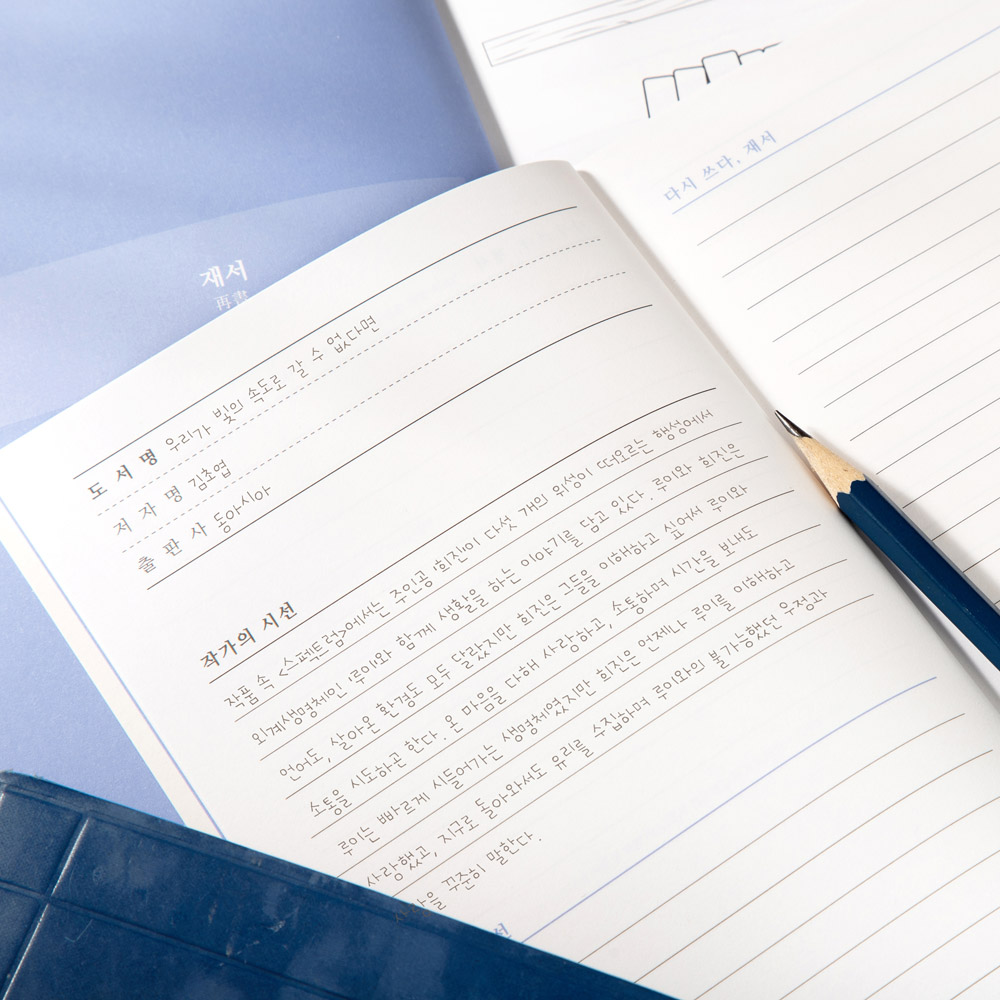 다시 쓰다, 재서
재서
再書
도 서 명 우리가 빛의 속도로 갈 수 없다면
저 자 명 김초엽
출 판 사 동아시아
작가의 시선
작품 속 <스펙트럼>에서는 주인공 희진이 다섯 개의 위성이 떠오르는 행성에서
외계생명체인 루이와 함께 생활을 하는 이야기를 담고 있다. 루이와 희진은
언어도, 살아온 환경도 모두 달랐지만 희진은 그들을 이해하고 싶어서 루이와
소통을 시도하곤 한다. 온 마음을 다해 사랑하고, 소통하며 시간을 보내도
루이는 빠르게 시들어가는 생명체였지만 희진은 언제나 루이를 이해하고
사랑했고, 지구로 돌아와서도 유리를 수집하며 루이와의 불가능했던 우정과
꾸준히 말한다.